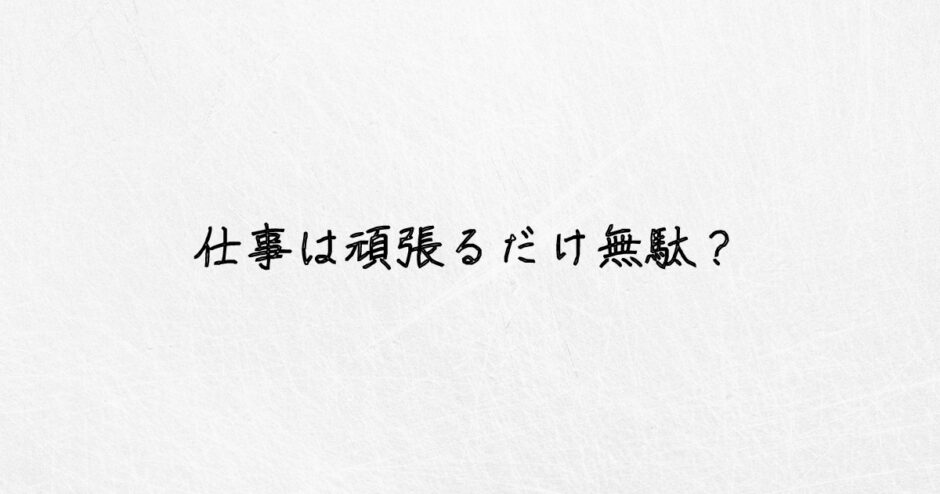 仕事は頑張るだけ無駄？